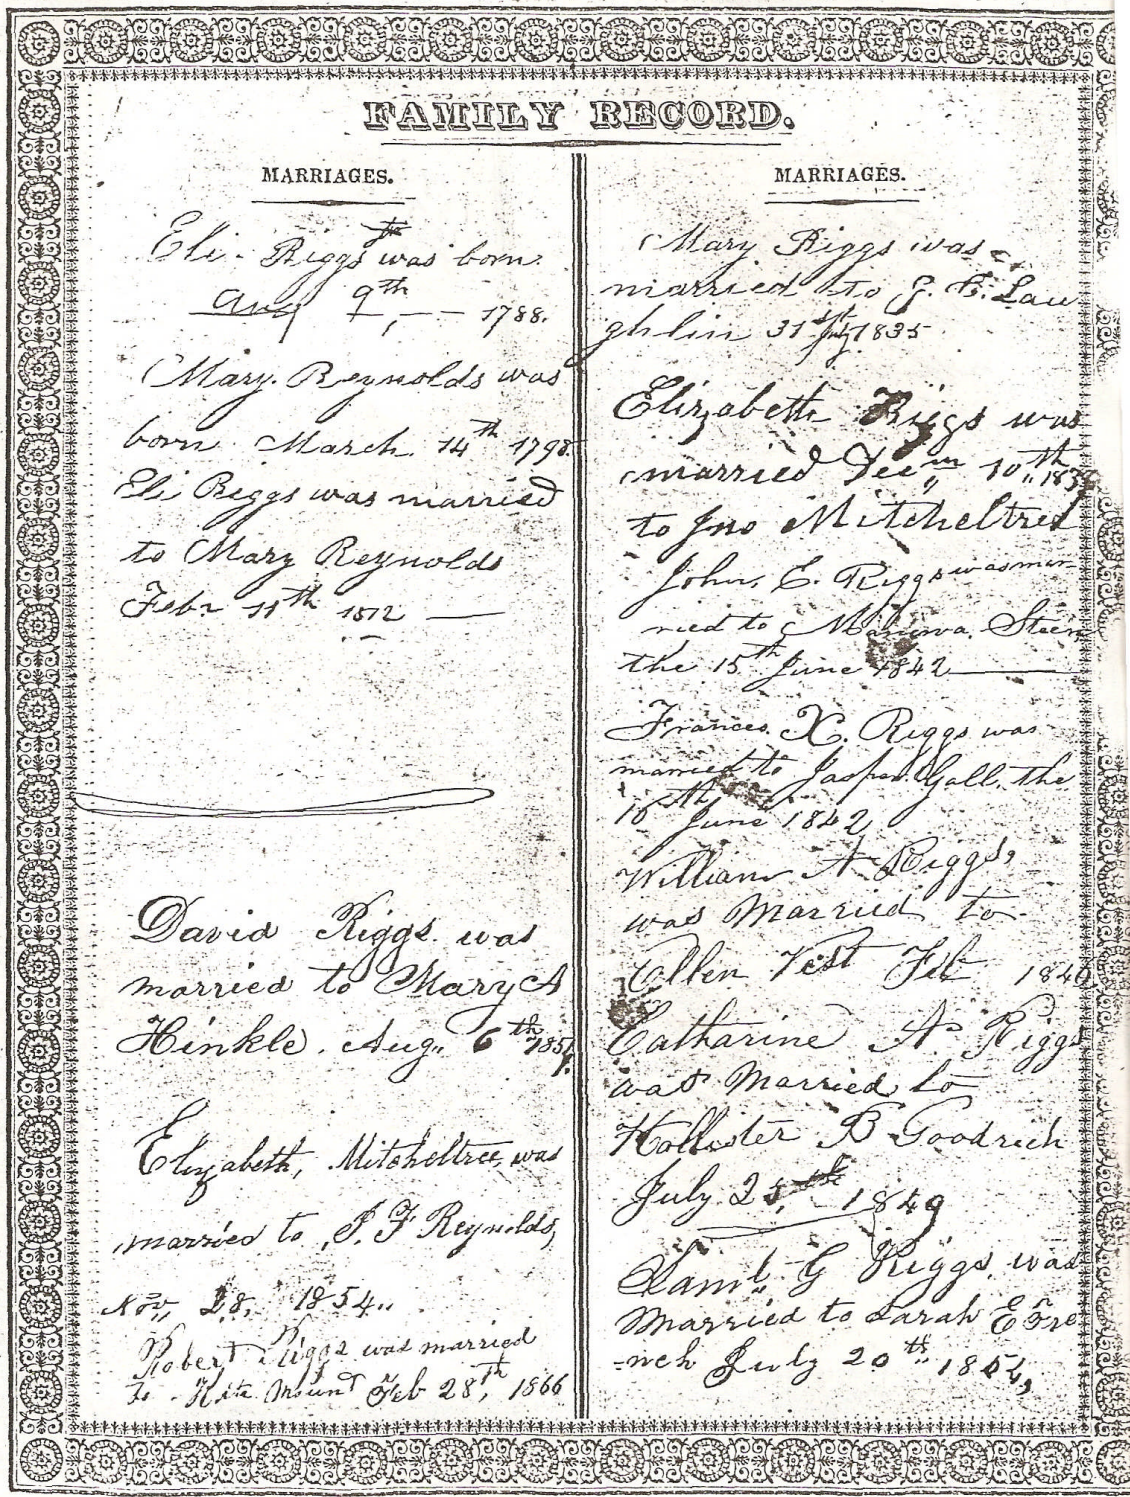 FAMILY RECORD.
MARRIAGES.
Eli Riggs was born
Aug 9th 1788.
Mary Reynolds was
born March 14th 179
Eli Riggs was married
to Mary Reynolds
Febr 11th 1812
David Riggs was
married to Mary A
Hinkle. Aug,, 6th 185
Elizabeth, Mitcheltree, was
married to J. F Reynolds,
Nov,, 28, 1854,,
Robert Riggs was married
To Kate Mount Feb 28th, 1866
MARRIAGES.
Mary Riggs was
married to J. B. Lau
ghlin 31st July 1835
Elizabeth Riggs was
married Decm 10th 183
to Jno Mitcheltree
John. E. Riggs was mar
ried to Steen
the 15th June 1842
Frances. X. Riggs was
married to Jasper Gall. the
16th June 1842
William A Riggs,
was Married to
Ellen Vest Feb 184
Catharine A Riggs
was Married to
Hollister B Goodrich
July 1849
Saml. G Riggs, was
Married to Sarah E Fre
-nch July 20th,, 1854,